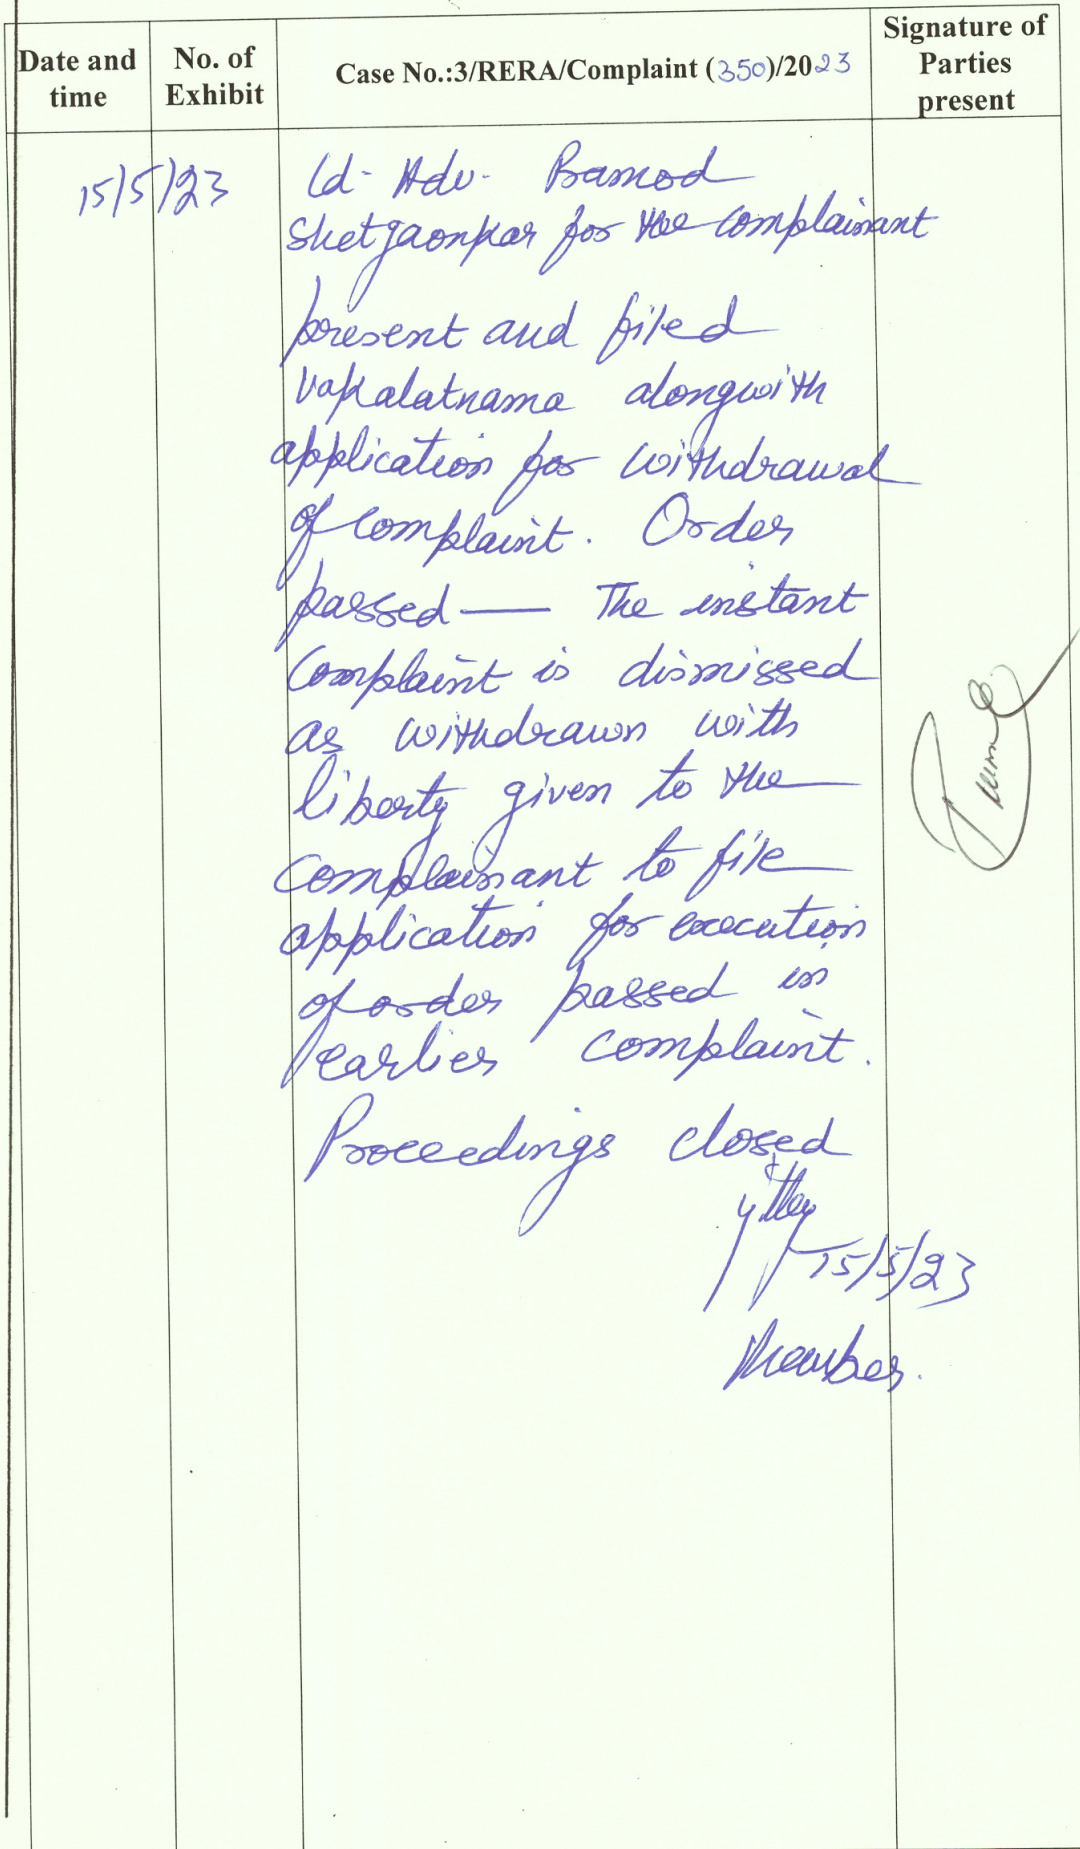 Date and time
No. of Exhibit
Case No.:3/RERA/Complaint (350)/2023
Signature of Parties present
15/5/23
Ld. Adv. Pramod
Shetgaonkar for the complainant
present and filed
vakalatnama alongwith
application for withdrawal
of complaint. Order
passed — The instant
Complaint is dismissed
as withdrawn with
liberty given to the
complainant to file
application for execution
of order passed in
earlier complaint.
Proceedings closed
15/5/23
Member.